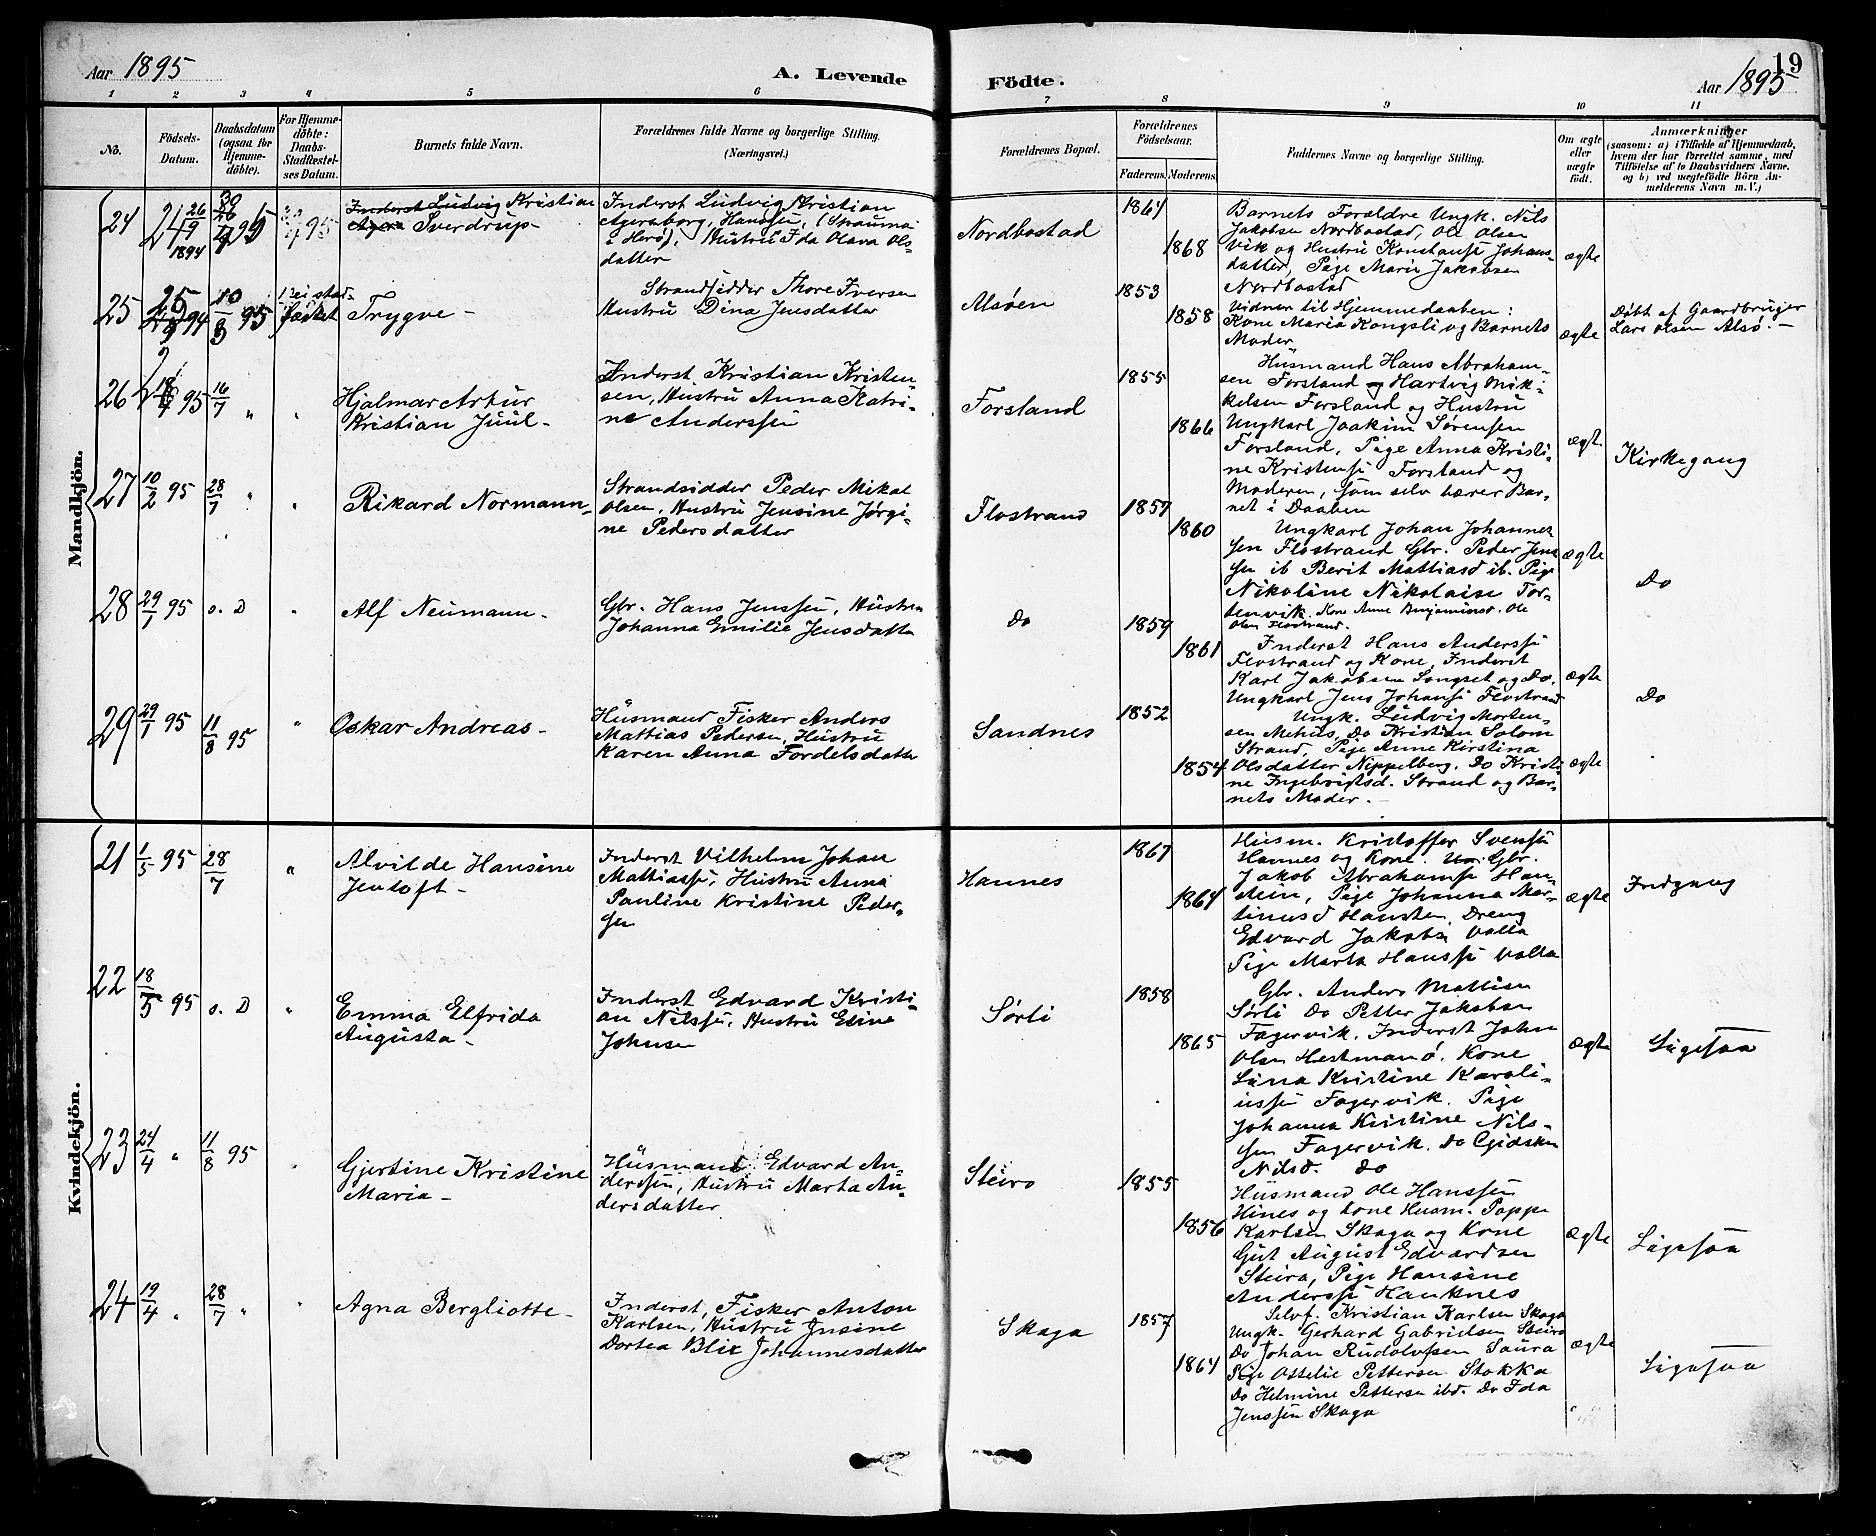 Aar 1895
A. Levende
Födte.
Aar 1895
19
1 2 3 4 5 6 7 8 9 10 11
No.
Födsels-
Datum.
Daabsdatum
(ogsaa for
Hjemme-
döbte).
For Hjemme-
döbte:
Daabs-
Stadfæstel-
ses Datum.
Barnets fulde Navn.
Forældrenes fulde Navne og borgerlige Stilling.
(Næringsvei.)
Forældrenes Bopæl.
Forældrenes
Födselsaar.
Faderens. Moderens.
Faddernes Navne og borgerlige Stilling.
Om ægte
eller
uægte
födt.
Anmærkninger
(saasom: a) i Tilfælde af Hjemmedaab,
hvem der har forrettet samme, med
Tilföielse af to Daabsvidners Navne,
og b) ved uægtefödte Börn An-
melderens Navn m. V.)
Mandkjön.
24
26/9
1894
95
Inderst Ludvig Kristian
Sverdrup-
Inderst Ludvig Kristian
Ageraborg, Hanssen, (Strauma
i Herø), Hustru Ida Olava Ols-
datter
Nordbostad
1864
1868
Barnets Forældre Ungk. Nils
Jakobsen Nordbostad, Ole Olsen
Vik og Hustru Konstanse Johans-
datter, Pige Marie Jakobsen
Nordbostad
ægte
25
94
10/3 95
Trygve -
Strandsidder Thore Iversen
Hustru Dina Jensdatter
Alsøen
1853
1858
Vidner til Hjemmedaaben:
Kone Maria Kongsli og Barnets
Moder
ægte
Døbt af Gaardbruger
Lars Olsen Alsø. -
26
95
16/7 "
"
Hjalmar Artur
Kristian Juul-
Inderst Kristian Kristen-
sen, Hustru Anna Katri-
ne Anderssen
Forsland
1855
1866
Husmand Hans Abraham-
sen Forsland og Hartvig Mik-
kelsen Forsland og Hustru
Ungkarl Joakim Sørensen
Forsland, Pige Anna Kristi-
ne Kristense Forsland og
Moderen, som selv bærer Bar-
net i Daaben
ægt.
Kirkegang
27
10/2 95
28/7 "
"
Rikard Normann-
Strandsidder Peder Mikal
Olsen, Hustru Jensine Jørgi-
ne Pedersdatter
Flostrand
1857
1860
Ungkarl Johan Johannes
sen Flostrand Gbr. Peder Jens
sen ib Berit Mattiasd ib. Pige
Nikoline Nikolaise For-
Kone Anne Benjaminsd. Ole
Olsen Flostrand.
ægte
Do
28
29/1 95
s. D
"
Alf Neumann-
Gbr. Hans Jenssen, Hustru
Johanna Emilie Jensdatte
Do
1859
1861
Inderst Hans Anderssen
Flostrand og Kone, Inderst
Karl Jakobsen Songset og Do.
Ungkarl Jens Johanse Flostrand
ægte
Do
29
29/1 95
11/8 95
"
Oskar Andreas-
Husmand Fisker Anders
Mattias Pedersen, Hustru
Karen Anna Fordelsdatte
Sandnes
1852
1854
Ungk. Ludvig Morten-
sen Mehus, Do Kristian Solom
Strand, Pige Anne Kirstina
Olsdatter Nippelberg, Do Kristi-
ne Ingebrigtsd. Strand og Bar-
nets Moder. -
ægte
Kvindekjön.
21
1/5 95
28/7
"
Alvilde Hansine
Jentoft -
Inderst Vilhelm Johan
Mattiasse, Hustru Anna
Pauline Kristine Peder-
sen
Hannes
1867
1864
Husm. Kristoffer Svense
Hannes og Kone. Gbr.
Jakob Abrahamse Han-
stein, Pige Johanna Mar-
tinusd Hansten, Dreng
Edvard Jakobs Valla
Pige Marta Hansse Valla
ægte
Indgang
22
18/5 95
s. D
"
Emma Elfrida
Augusta-
Inderst Edvard Kristi-
an Nilsse, Hustru Eline
Johnsen
Sørli
1858
1865
Gbr. Anders Mattisen
Sørli Do Petter Jakobsen
Fagervik. Inderst John
Olsen Hestmanø. Kone
Lina Kristine Karoli-
usse Fagervik. Pige
Johanna Kristine Nils-
sen Fagervik. Do Gjidsken
Nilsd. Do
ægte
Ligesaa
23
24/4 "
11/8 95
"
Gjertine Kristine
Maria-
Husmand Edvard An-
derssen, Hustru Marta An-
dersdatter
Steiro
1855
1856
Husmand Ole Hanssen
Hines og Kone Husm. Poppe
Karlsen Skaga og Kone
Gut August Edvardsen
Steira, Pige Hansine
Anderssen Hauknes
ægte
Ligesaa
24
19/4 "
28/7 "
"
Agna Bergliotte-
Inderst, Fisker Anton
Karlsen, Hustru Jnsine
Dortea Blix Johannesdatter
Skaga
1857
1864
Selvf. Kristian Karlsen Skaga
Ungk. Gerhard Gabrielsen Steiro
Do Johan Rudolvsen Saura
Pige Ottelie Pettersen Stokka
Do Helmine Pettersen ibd. Do Ida
Jenssen Skaga
ægte
Ligesaa